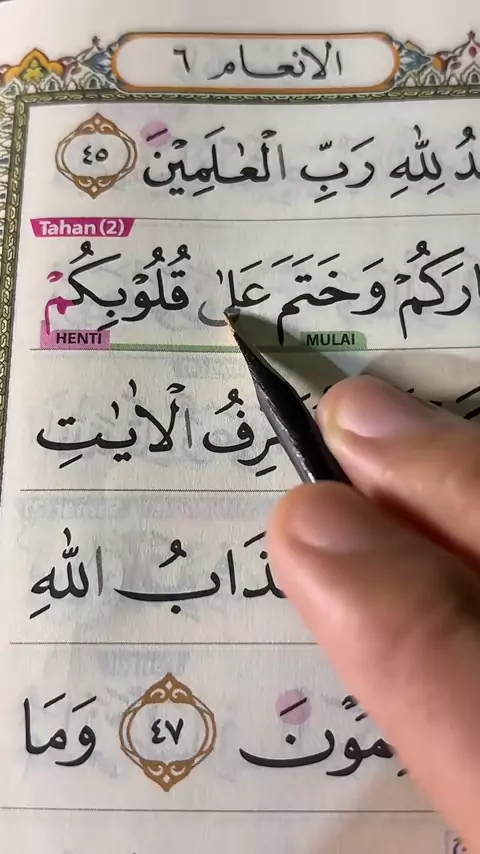 الانعام ٦
لِلّٰهِ رَبِّ الْعٰلَمِيْنَ ٤٥
Tahan (2)
وَخَتَمَ عَلٰى قُلُوْبِكُمْ
HENTI MULAI
الْاٰيٰتِ
اللّٰهِ
٤٧ وَمَا